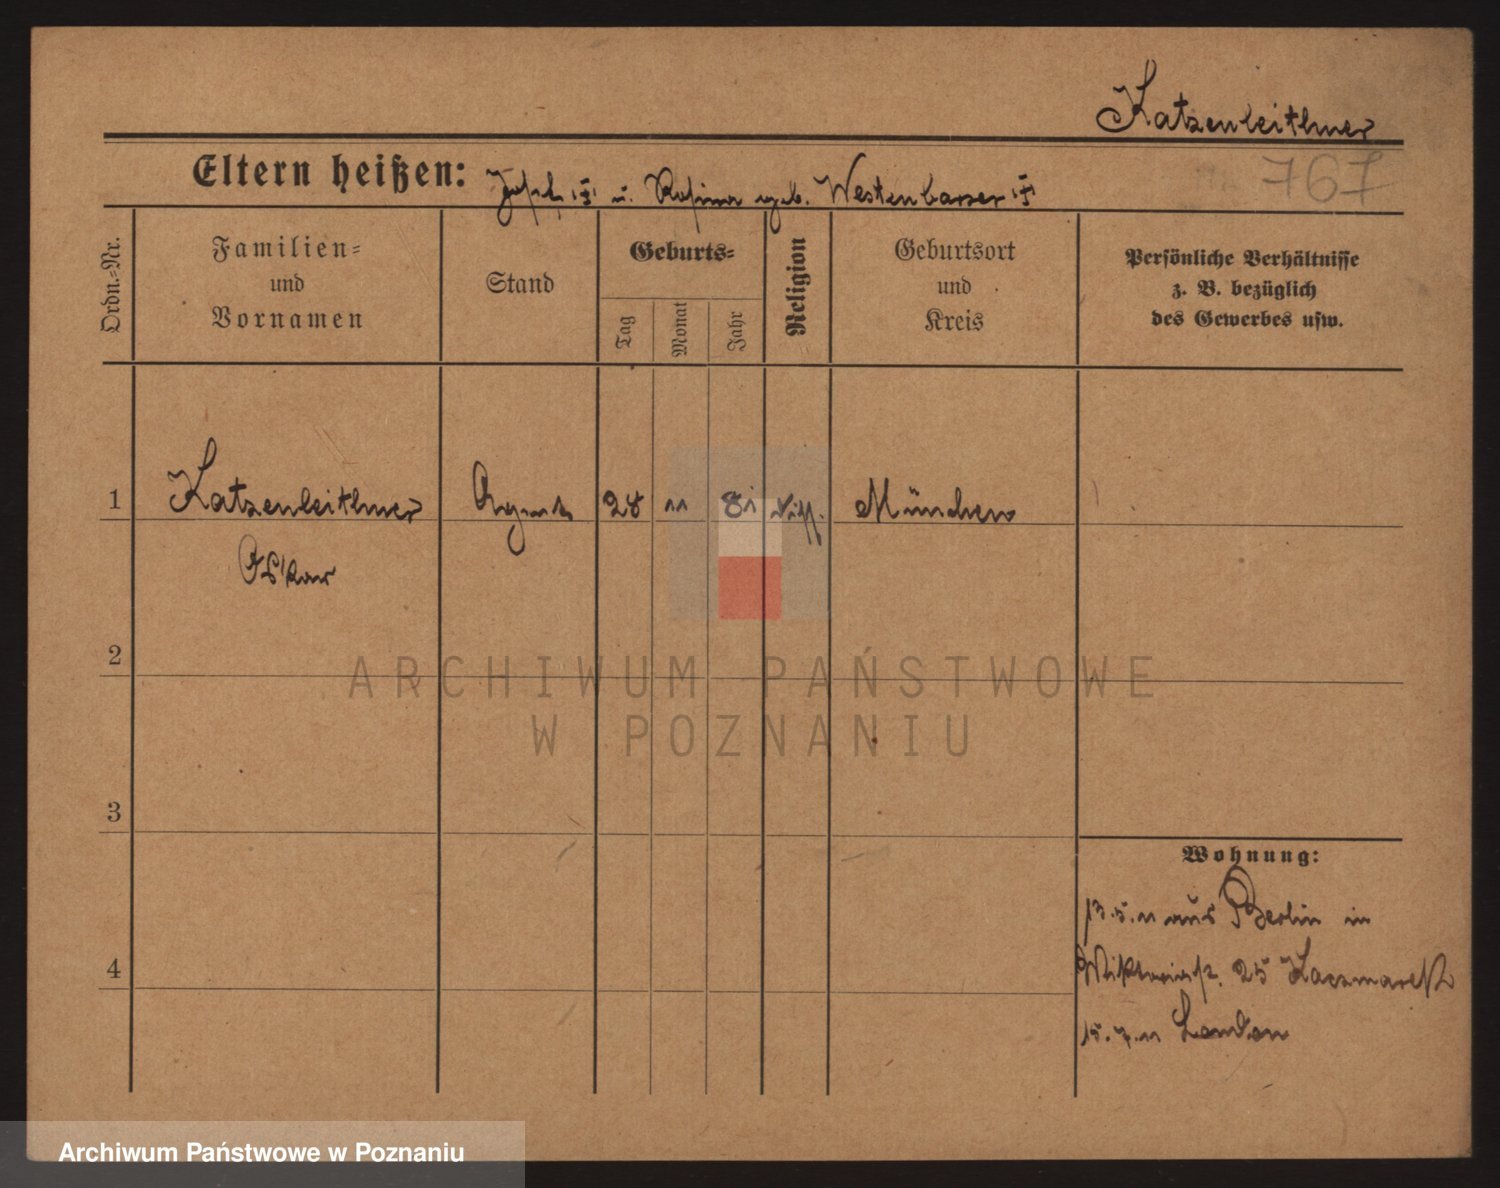 Katzenleithner
767
Eltern heißen: Josef u. Rosina geb. Westenbarser
Ordn.=Nr.
Familien=
und
Vornamen
Stand
Geburts=
Tag
Monat
Jahr
Religion
Geburtsort
und
Kreis
Persönliche Verhältnisse
z. B. bezüglich
des Gewerbes usw.
1 Katzenleithner Agent 28 11 81 München
Oskar
2
3
4
Wohnung:
13.5.11 aus Berlin in
Viktoriastr. 25 Kaczmarek
15.7.11 London
ARCHIWUM PAŃSTWOWE
W POZNANIU
Archiwum Państwowe w Poznaniu